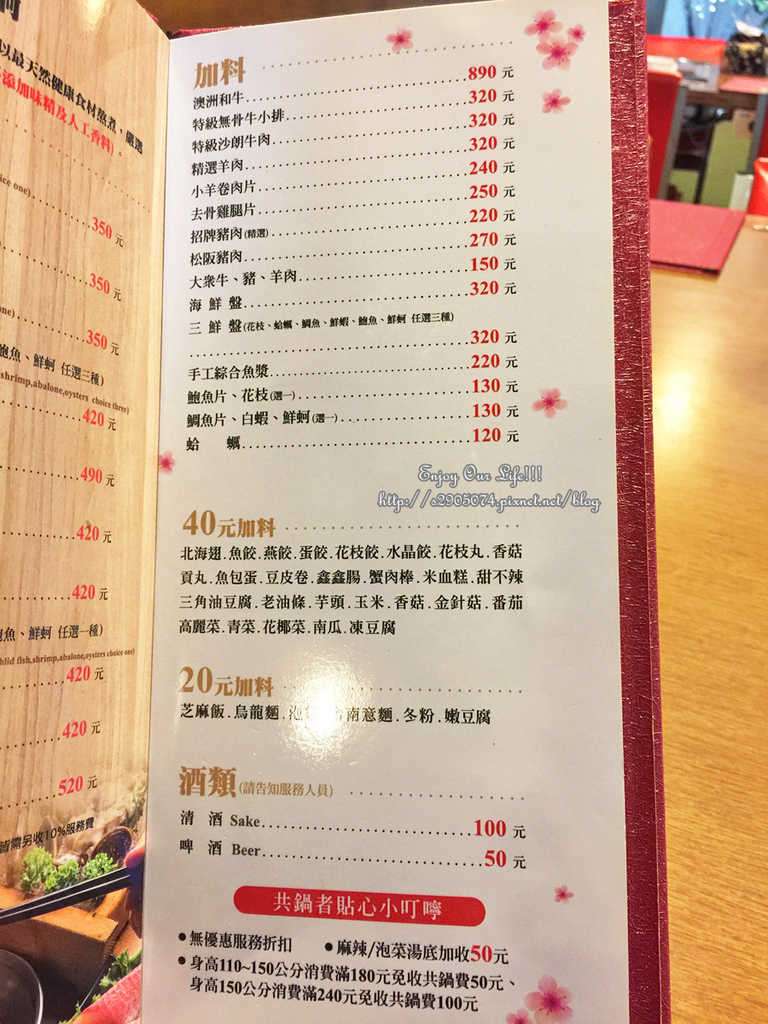 以最天然健康食材熬煮、嚴選
添加味精及人工香料)。
ice one)
350 元
350 元
one)
350 元
鮑魚、鮮蚵 任選三種)
shrimp,abalone,oysters choice three)
420 元
490 元
420 元
420 元
鮑魚、鮮蚵 任選一種)
hlid fish,shrimp,abalone,oysters choice one)
420 元
420 元
520 元
皆需另收10%服務費
加料
澳洲和牛 890 元
特級無骨牛小排 320 元
特級沙朗牛肉 320 元
精選羊肉 320 元
小羊卷肉片 240 元
去骨雞腿片 250 元
招牌豬肉(精選) 220 元
松阪豬肉 270 元
大衆牛、豬、羊肉 150 元
海鮮盤 320 元
三鮮盤(花枝、蛤蠣、鯛魚、鮮蝦、鮑魚、鮮蚵 任選三種)
320 元
手工綜合魚漿 220 元
鮑魚片、花枝(選一) 130 元
鯛魚片、白蝦、鮮蚵(選一) 130 元
蛤蠣 120 元
Enjoy Our Life!!!
http://s2905074.pixnet.net/blog
40元加料
北海翅.魚餃.燕餃.蛋餃.花枝餃.水晶餃.花枝丸.香菇
貢丸.魚包蛋.豆皮卷.鑫鑫腸.蟹肉棒.米血糕.甜不辣
三角油豆腐.老油條.芋頭.玉米.香菇.金針菇.番茄
高麗菜.青菜.花椰菜.南瓜.凍豆腐
20元加料
芝麻飯.烏龍麵.南意麵.冬粉.嫩豆腐
酒類(請告知服務人員)
清 酒 Sake 100 元
啤 酒 Beer 50 元
共鍋者貼心小叮嚀
●無優惠服務折扣 ●麻辣/泡菜湯底加收50元
●身高110~150公分消費滿180元免收共鍋費50元、
身高150公分消費滿240元免收共鍋費100元